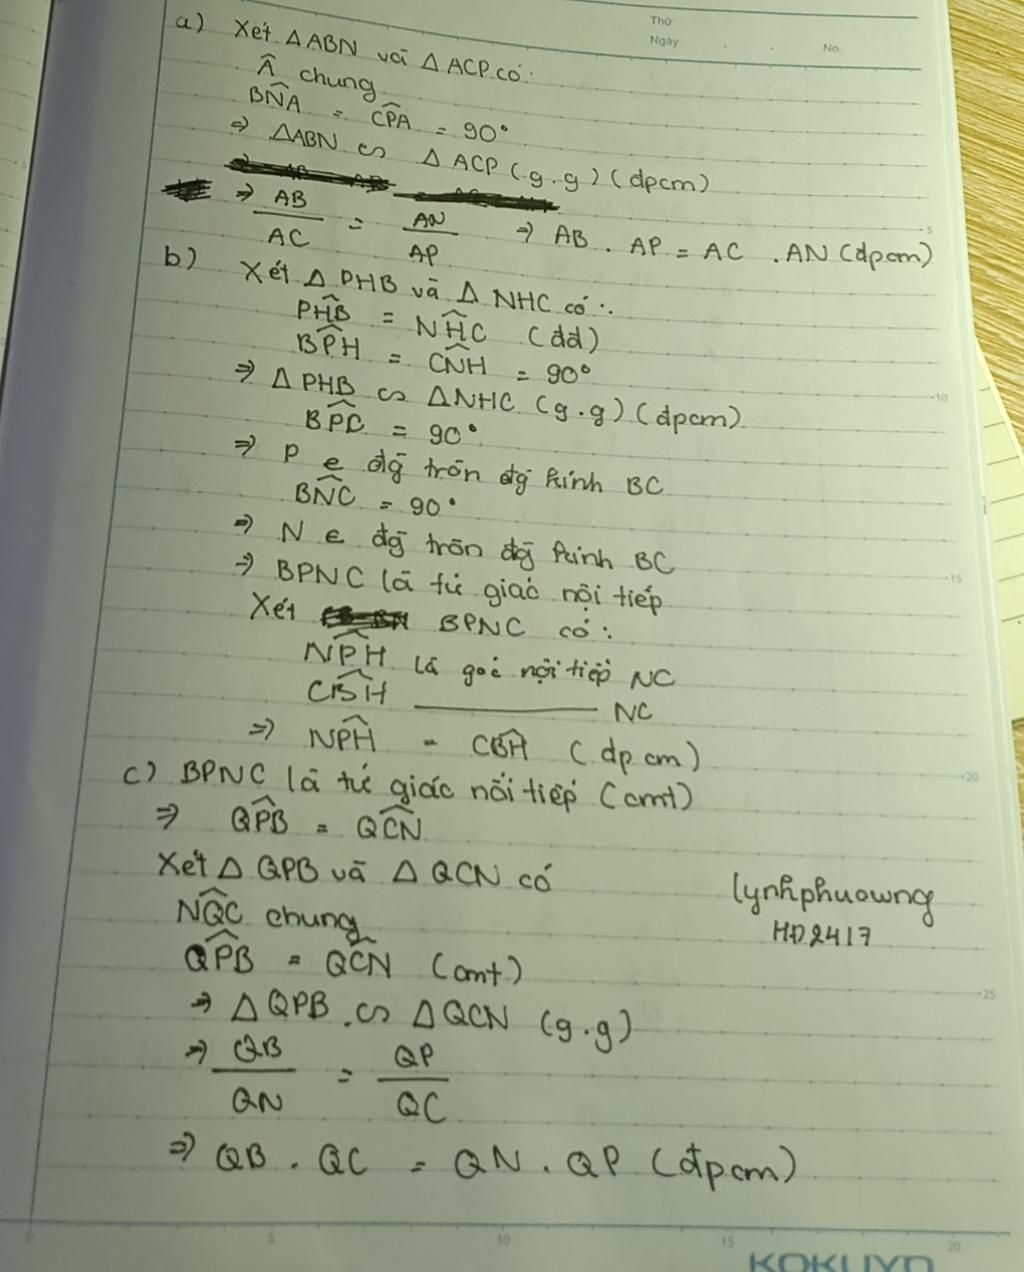 Thứ
Ngày . . No.
a) Xét ΔABN và ΔACP có:
Â chung
BN̂A = CP̂A = 90°
⇒ ΔABN ∽ ΔACP (g.g) (dpcm)
⇒ AB/AC = AN/AP ⇒ AB . AP = AC . AN (dpcm)
b) Xét ΔPHB và ΔNHC có:
PĤB = NĤC (dd)
BP̂H = CN̂H = 90°
⇒ ΔPHB ∽ ΔNHC (g.g) (dpcm)
BP̂C = 90°
⇒ P e đg tròn đg kính BC
BN̂C = 90°
⇒ N e đg tròn đg kính BC
⇒ BPNC là tứ giác nội tiếp
Xét BPNC có:
NP̂H là góc nội tiếp NC
CB̂H ———— NC
⇒ NP̂H = CB̂H (dpcm)
c) BPNC là tứ giác nối tiếp (cmt)
⇒ QP̂B = QĈN
Xét ΔQPB và ΔQCN có
NQ̂C chung
QP̂B = QĈN (cmt)
⇒ ΔQPB ∽ ΔQCN (g.g)
⇒ QB/QN = QP/QC
⇒ QB . QC = QN . QP (đpcm)
lynhphuowng
HD2417
5
10
15
20
25
0 5 10 15 20
KOKUYO